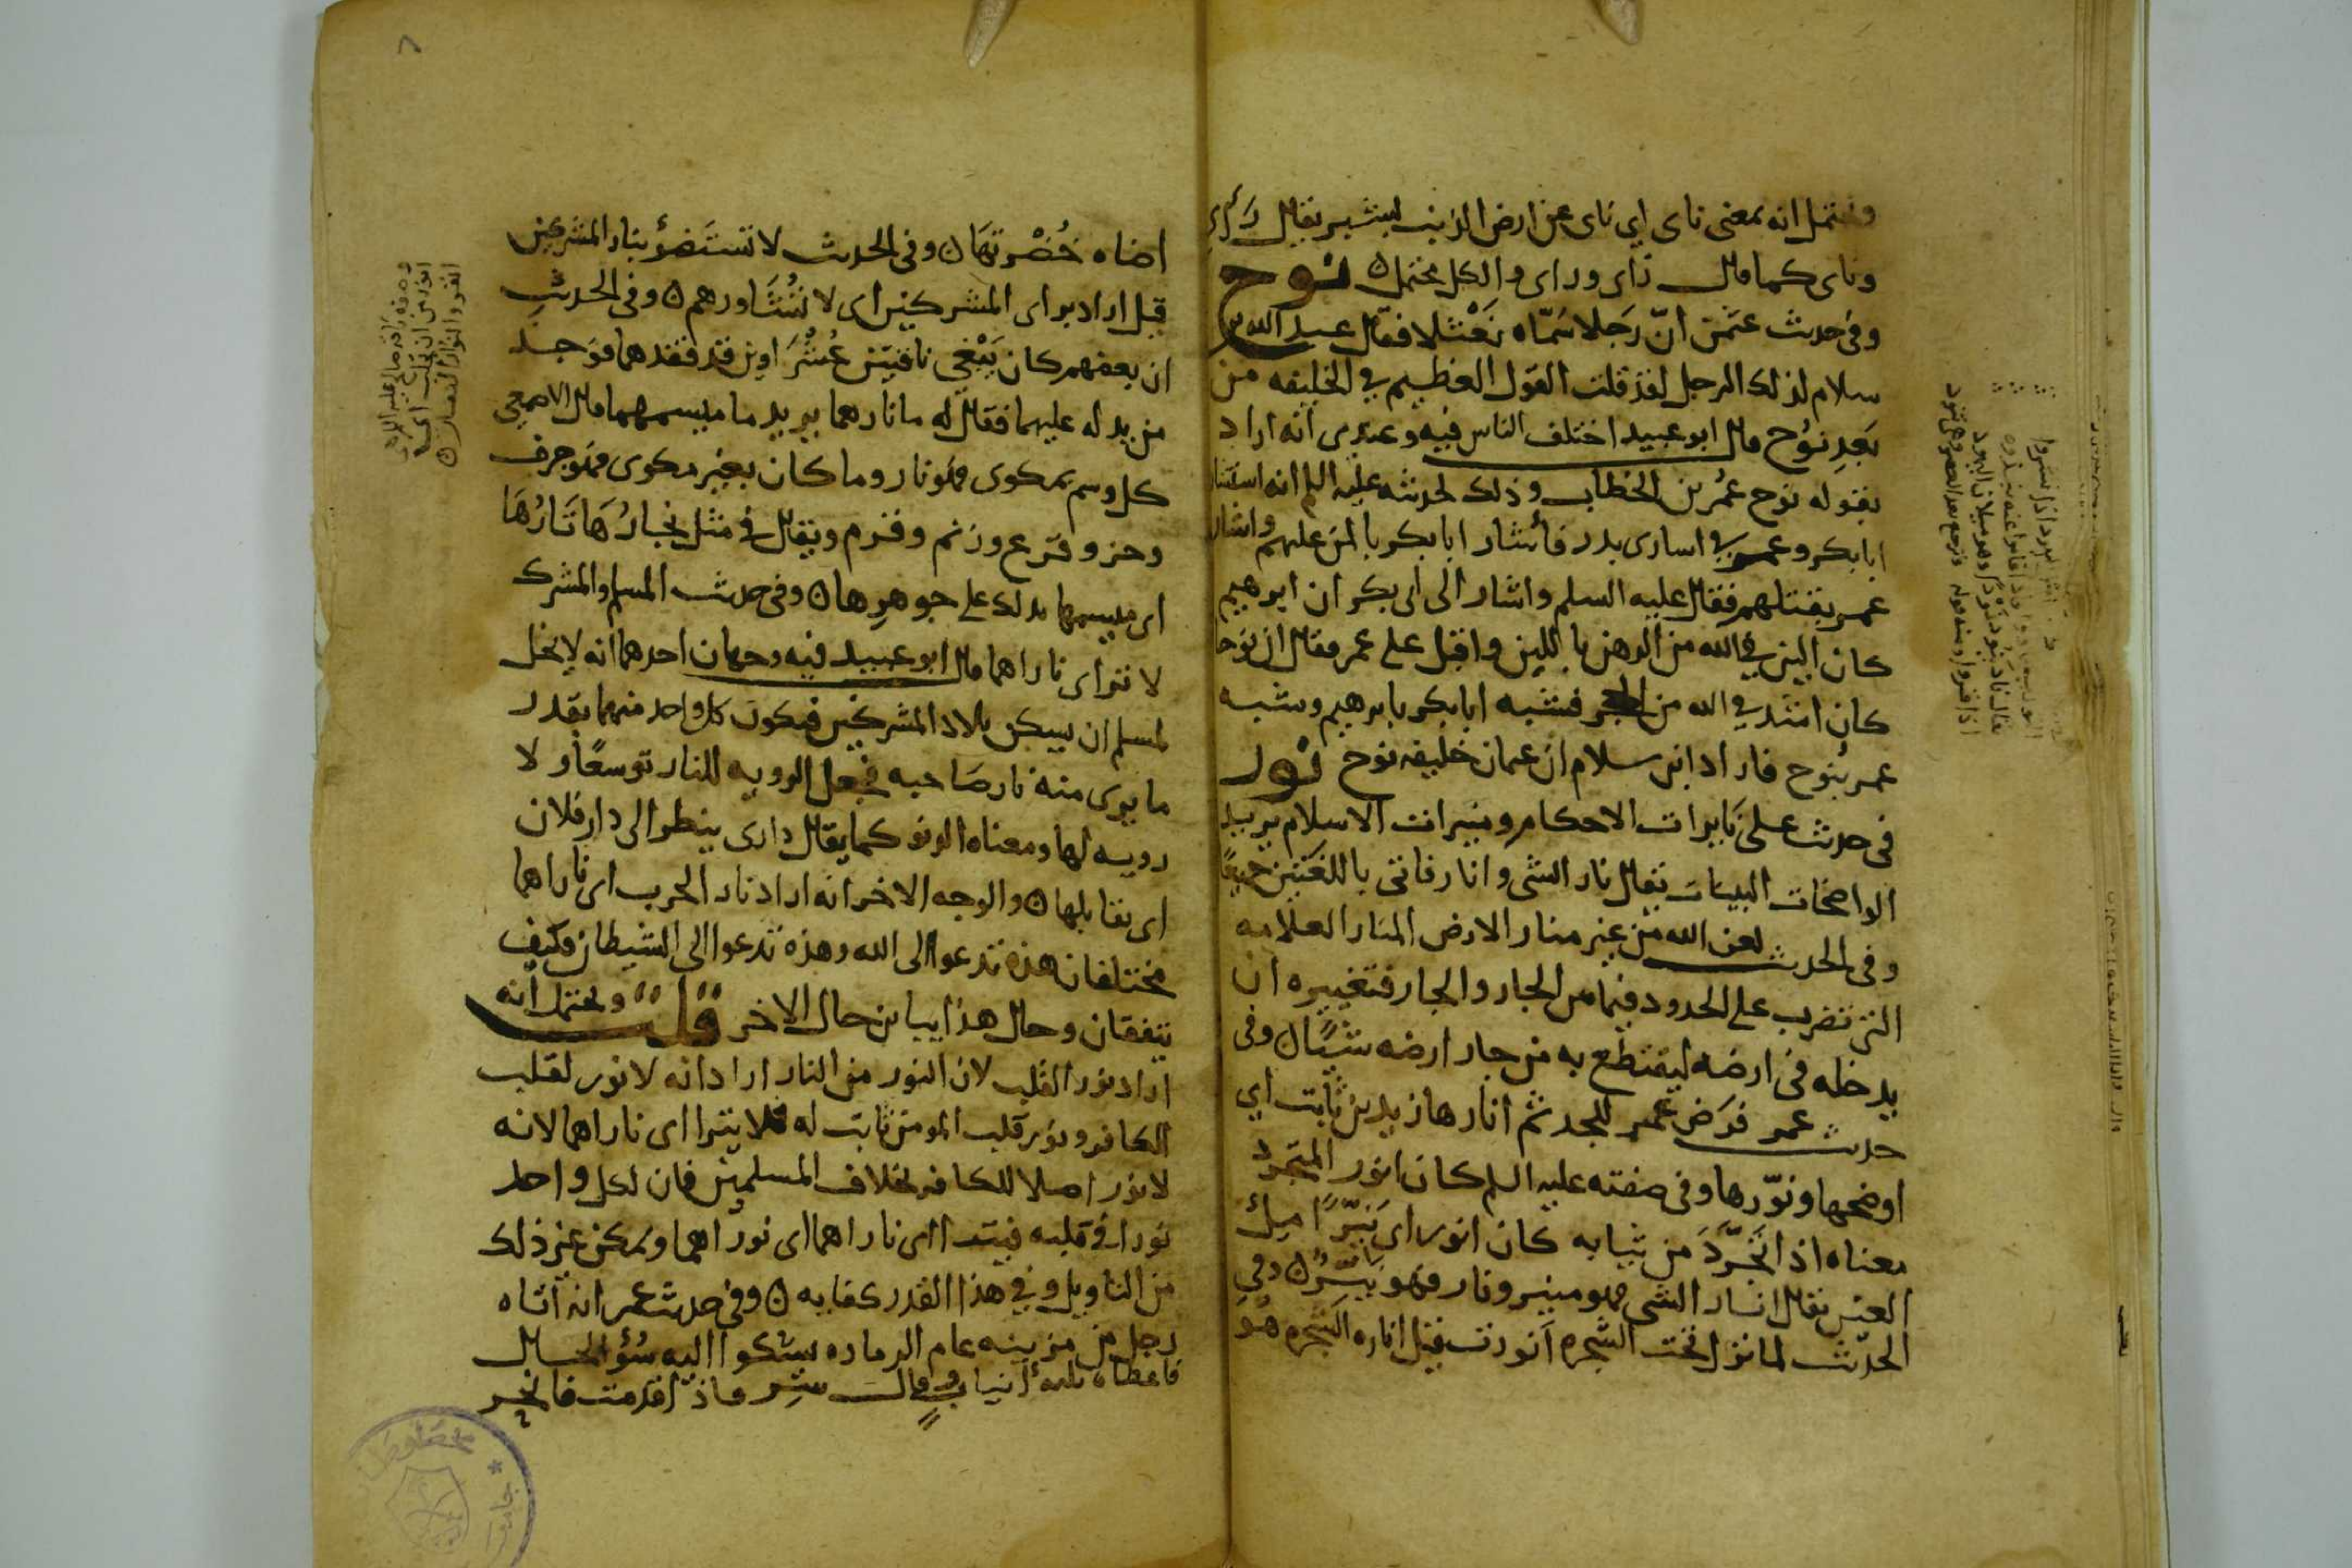 ويحتمل انه بمعنى ناى اي ناى عن ارض الذنب يقال
وناى كما قال زاى وراى والكل محتمل ن نوح
وفي حديث عثمن انّ رجلا سمّاه نعثلا فقال عبد الله بن
سلام لذلك الرجل لقد قلت القول العظيم في الخليفه من
بعد نوح قال ابو عبيد اختلف الناس فيه وعندى انه اراد
بقوله نوح عمر بن الخطاب وذلك لحديثه عليه السلم انه استشار
ابا بكر وعمر في اسارى بدر فأشار ابا بكر بالمن عليهم واشار
عمر بقتلهم فقال عليه السلم واشار الى ابى بكر ان ابرهيم
كان الين في الله من الدهن بالليّن واقبل على عمر فقال ان نوحا
كان اشد في الله من الحجر فشبه ابا بكر بابرهيم وشبه
عمر بنوح فاراد ابن سلام ان عثمان خليفه نوح نور
في حديث على نايرات الاحكام ومنيرات الاسلام يريد
الواضحات البينات يقال نار الشى وانار فاتى باللغتين جميعًا
وفي الحديث لعن الله من غير منار الارض المنار العلامه
التي تضرب على الحدود فيما بين الجار والجار فتغييره ان
يدخله في ارضه ليقتطع به من جار ارضه شيًا ن وفى
حديث عمر فرض عمر للجد ثم انارها زيد بن ثابت اي
اوضحها ونوّرها وفي صفته عليه السلم كان انور المتجرد
معناه اذا تجرَّدَ من ثيابه كان انور اى نيّرًا ملئ
العين يقال انار الشى فهو منير ونار فهو نيّرٌ ن وفي
الحديث لما نزل تحت الشجره انورت قيل اناره الشجره هو
اضاه خُضْرتهَا ن وفي الحديث لا تستَضئ بنار المشركين
قيل اراد براى المشركين اى لا تُشَاورهم ن وفي الحديث
ان بعضهم كان يَبْغي ناقتين عُشَرَاوين قد فقدهما فوجد
من يدله عليهما فقال له ما نارهما يريد ما ميسمهما قال الاصمعي
كل وسم بمكوى فهو نار وما كان بغير مكوى فهو حرف
وحز وقرع وزنم وقرم ويقال في مثل نجارُهَا نَارُهَا
اى ميسمها يدلك على جوهرها ن وفي حديث المسلم والمشرك
لا تتراى ناراهما قال ابو عبيد فيه وجهان احدهما انه لا يحل
لمسلم ان يسكن بلاد المشركين فيكون كل واحد منهما بقدر
ما يرى منه نار صَاحبه فجعل الرويه للنار توسعًا ولا
رويه لها ومعناه الدنو كما يقال دارى ينظر الى دار فلان
اى يقابلها ن والوجه الاخر انه اراد نار الحرب اى ناراهما
مختلفان هذه تدعوا الى الله وهذه تدعوا الى الشيطان وكيف
يتفقان وحال هذا يباين حال الاخر قلت ويحتمل انه
اراد نور القلب لان النور من النار اراد انه لا نور لقلب
الكافر ونور قلب المومن ثابت له فلا يترا اى ناراهما لانه
لا نور اصلا للكافر بخلاف المسلمين فان لكل واحد
نورا في قلبه فيترا اى ناراهما اى نوراهما ويمكن غير ذلك
من التاويل وفي هذا القدر كفايه ن وفي حديث عمر انه اتاه
رجل من مزينه عام الرماده يشكوا اليه سُؤ الحال
فاعطاه ثلثه انياب وقال سر فاذا قدمت فانحر